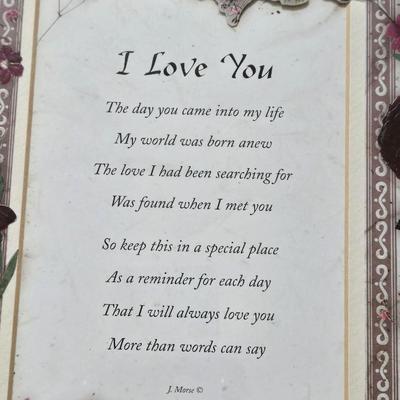 I Love You
The day you came into my life
My world was born anew
The love I had been searching for
Was found when I met you
So keep this in a special place
As a reminder for each day
That I will always love you
More than words can say
J. Morse ©